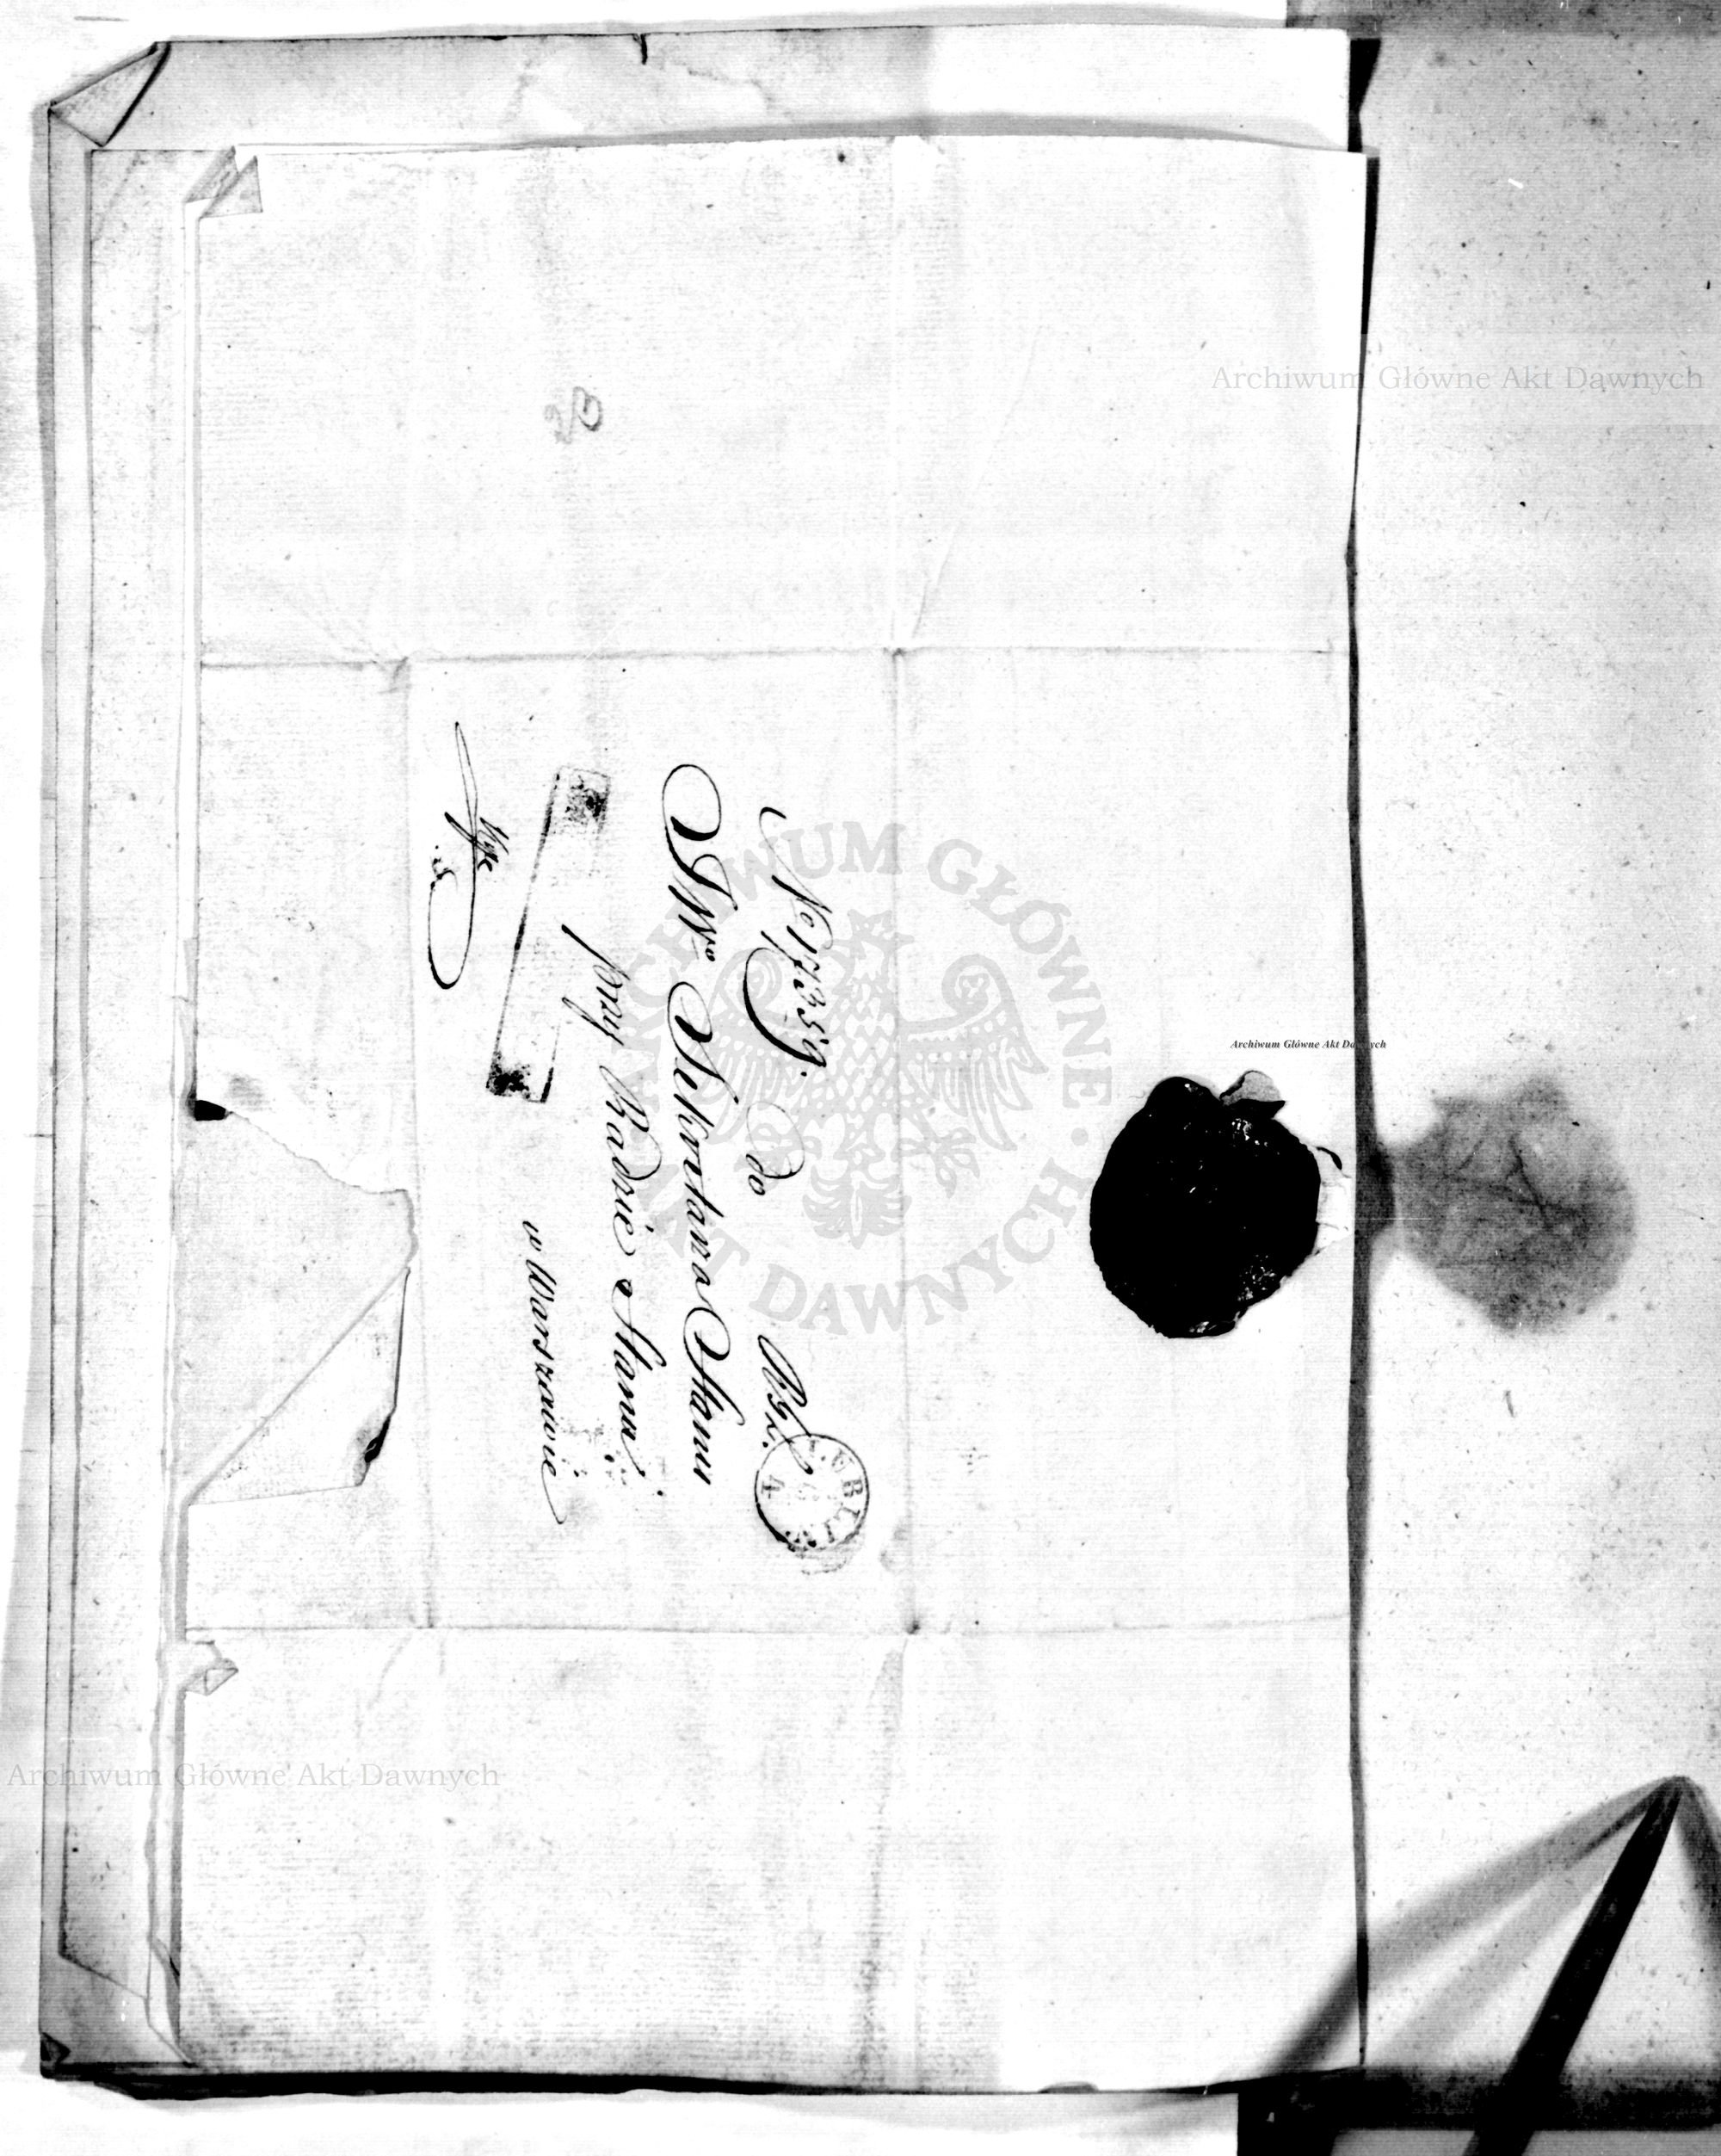 No 17359. do Wyż.
JWo Sekretarza Stanu
przy Radzie Stanu
w Warszawie
LUBLIN
4
Archiwum Główne Akt Dawnych
Archiwum Główne Akt Dawnych
Archiwum Główne Akt Dawnych
ARCHIWUM GŁÓWNE AKT DAWNYCH